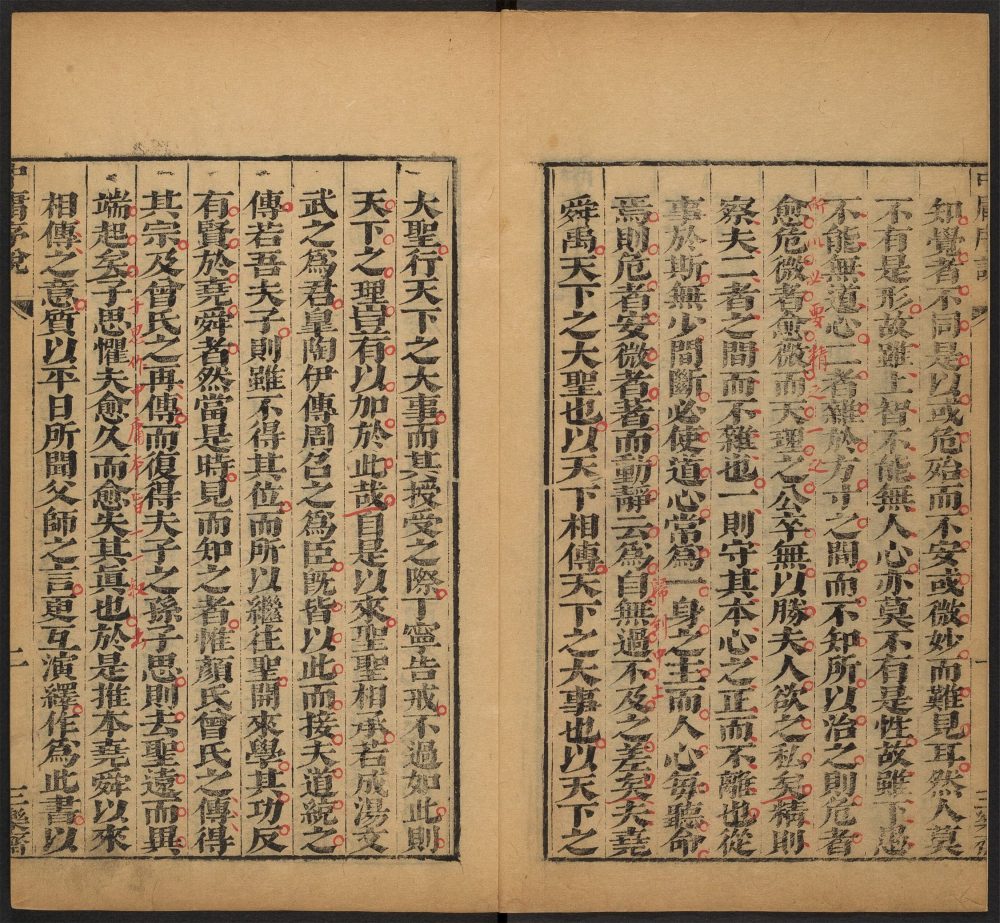 知覺者不同是以或危殆而不安或微妙而難見耳然人莫
不有是形故雖上智不能無人心亦莫不有是性故雖下愚
不能無道心二者雜於方寸之間而不知所以治之則危者
愈危微者愈微而天理之公卒無以勝夫人欲之私矣精則
察夫二者之間而不雜也一則守其本心之正而不離也從
事於斯無少間斷必使道心常為一身之主而人心每聽命
焉則危者安微者著而動靜云為自無過不及之差矣夫堯
舜禹天下之大聖也以天下相傳天下之大事也以天下之
大聖行天下之大事而其授受之際丁寧告戒不過如此則
天下之理豈有以加於此哉自是以來聖聖相承若成湯文
武之為君皐陶伊傅周召之為臣既皆以此而接夫道統之
傳若吾夫子則雖不得其位而所以繼往聖開來學其功反
有賢於堯舜者然當是時見而知之者惟顏氏曾氏之傳得
其宗及曾氏之再傳而復得夫子之孫子思則去聖遠而異
端起矣子思懼夫愈久而愈失其眞也於是推本堯舜以來
相傳之意質以平日所聞父師之言更互演繹作為此書以
中庸序說
二
三樂齋